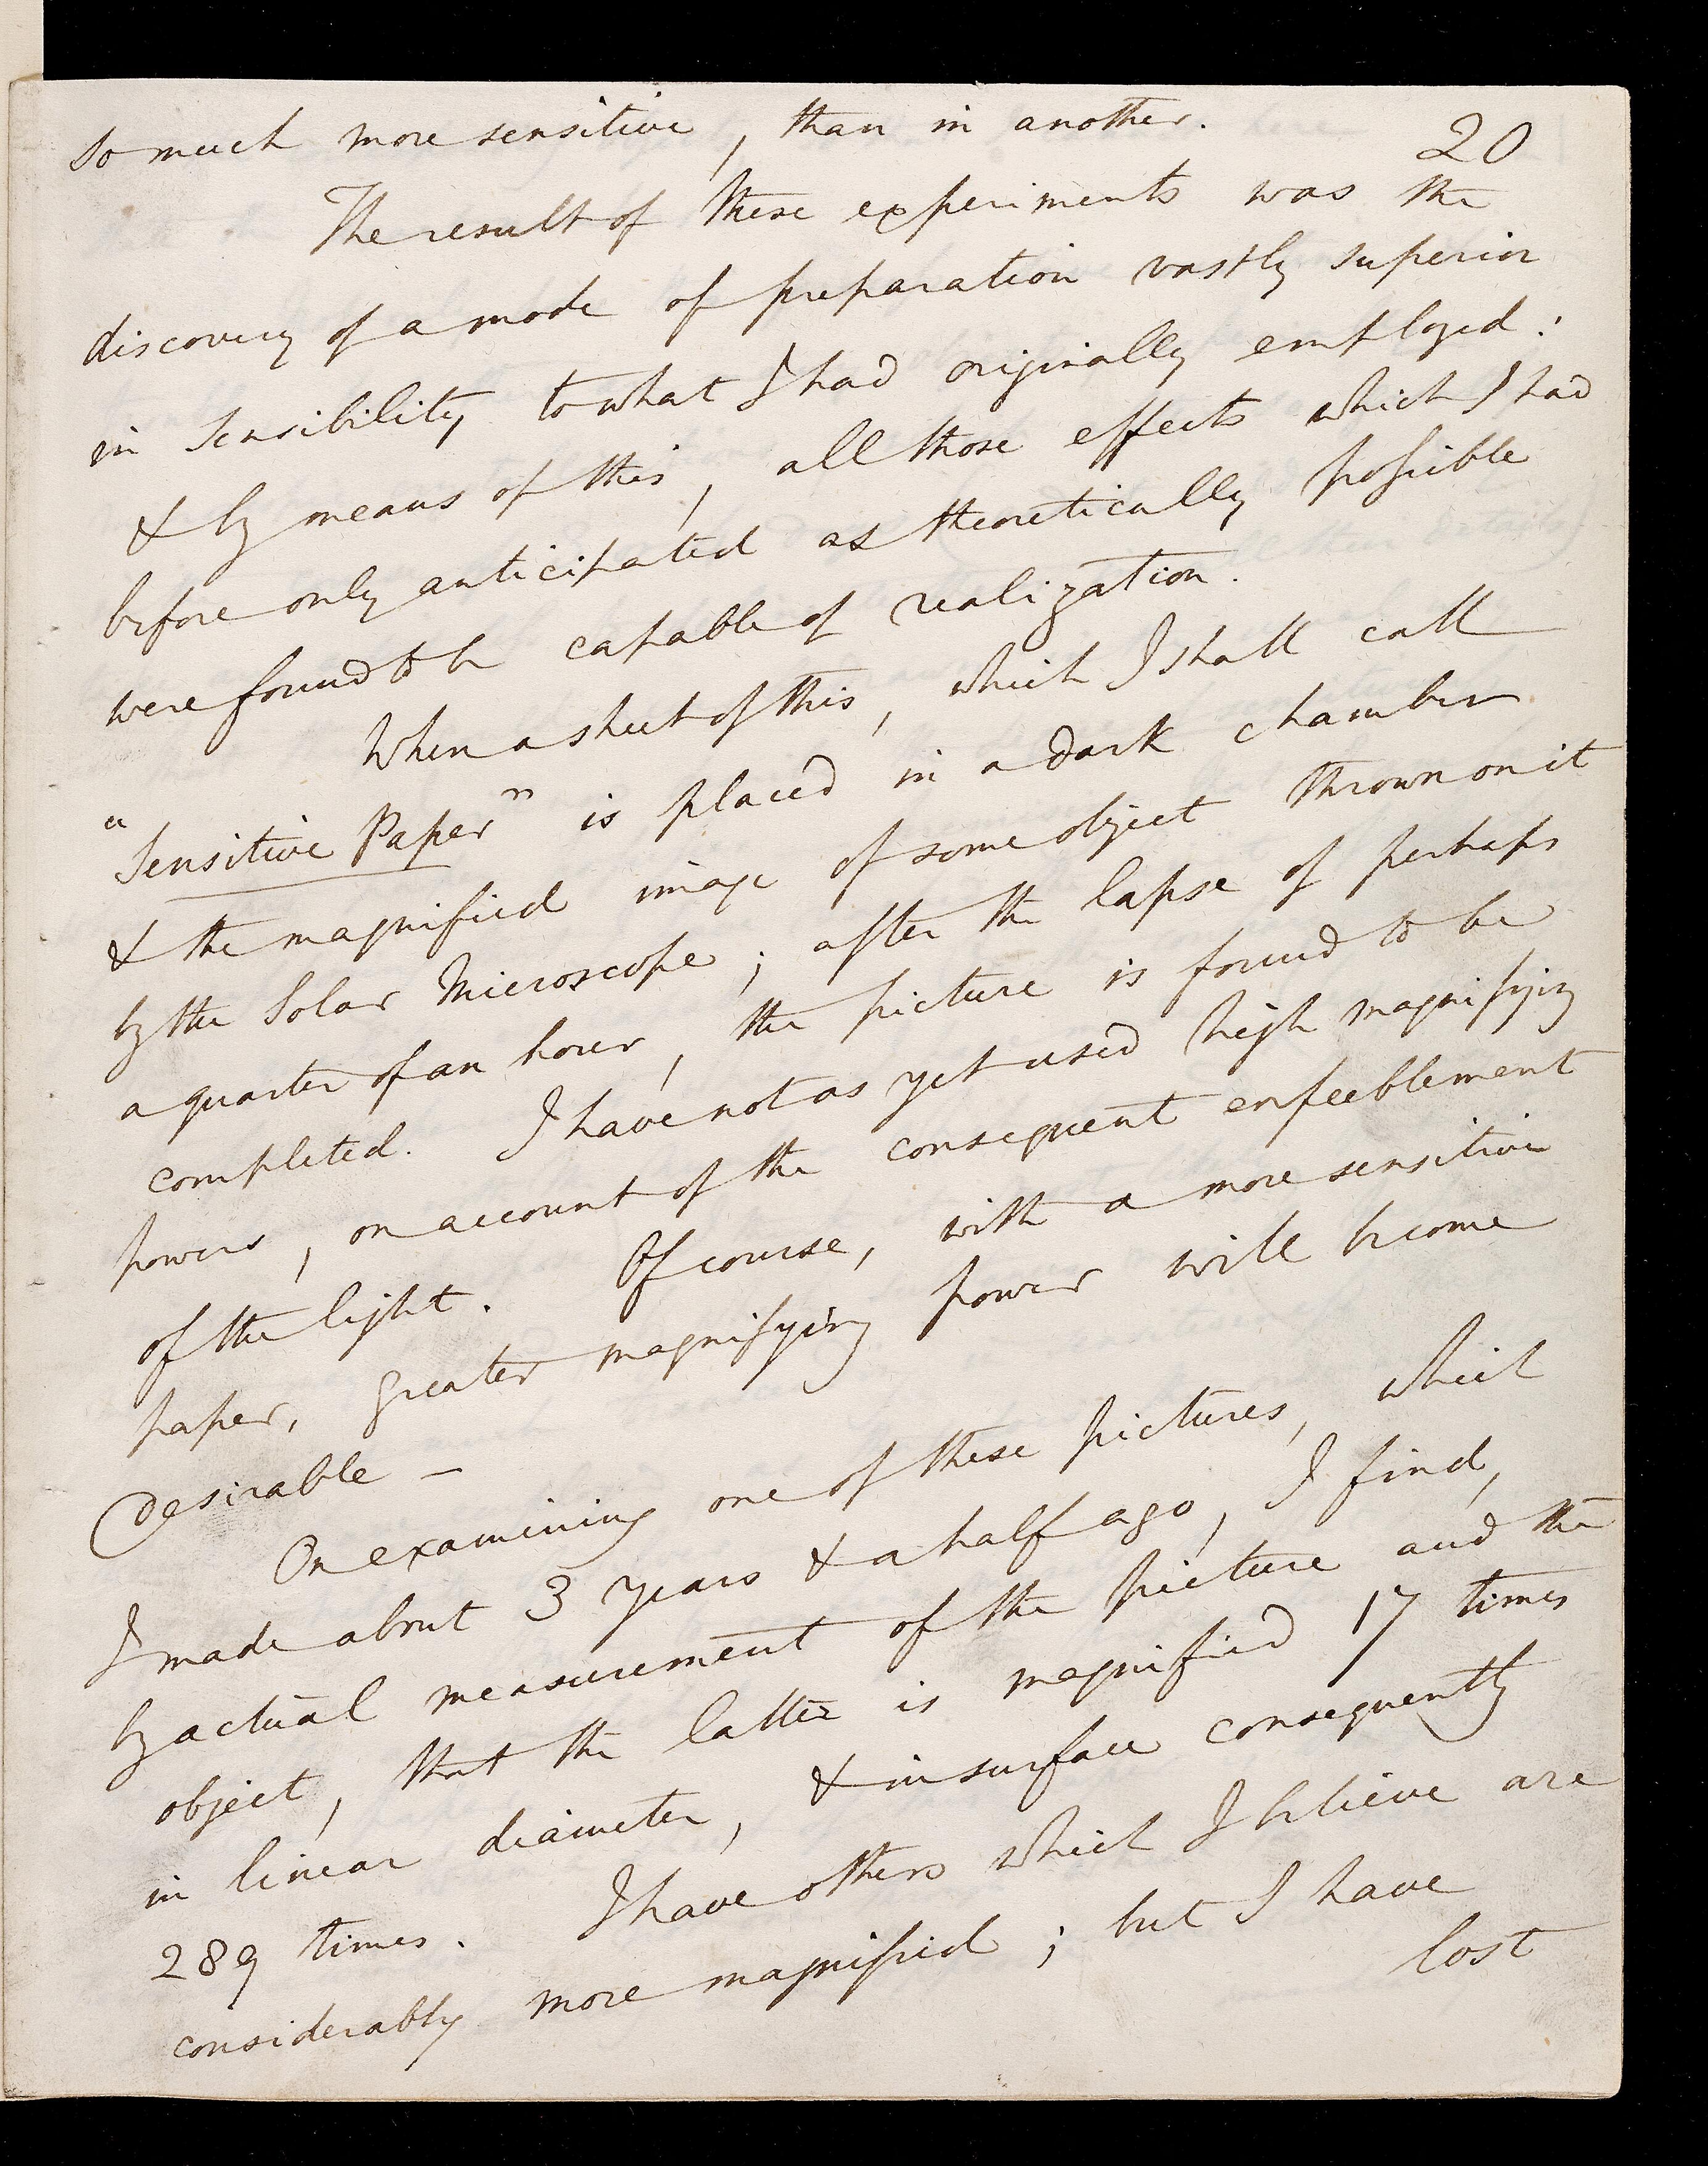 so much more sensitive, than in another.
20
The result of these experiments was the
discovery of a mode of preparation vastly superior
in sensibility to what I had originally employed:
& by means of this, all those effects which I had
before only anticipated as theoretically possible
were found to be capable of realization.
When a sheet of this, which I shall call
"Sensitive Paper" is placed in a dark chamber
& the magnified image of some object thrown on it
by the Solar Microscope; after the lapse of perhaps
a quarter of an hour, the picture is found to be
completed. I have not as yet used high magnifying
powers, on account of the consequent enfeeblement
of the light. Of course, with a more sensitive
paper, greater magnifying power will become
desirable —
On examining one of these pictures, which
I made about 3 years & a half ago, I find,
by actual measurement of the picture and the
object, that the latter is magnified 17 times
in linear diameter, & in surface consequently
289 times. I have others which I believe are
considerably more magnified; but I have
lost